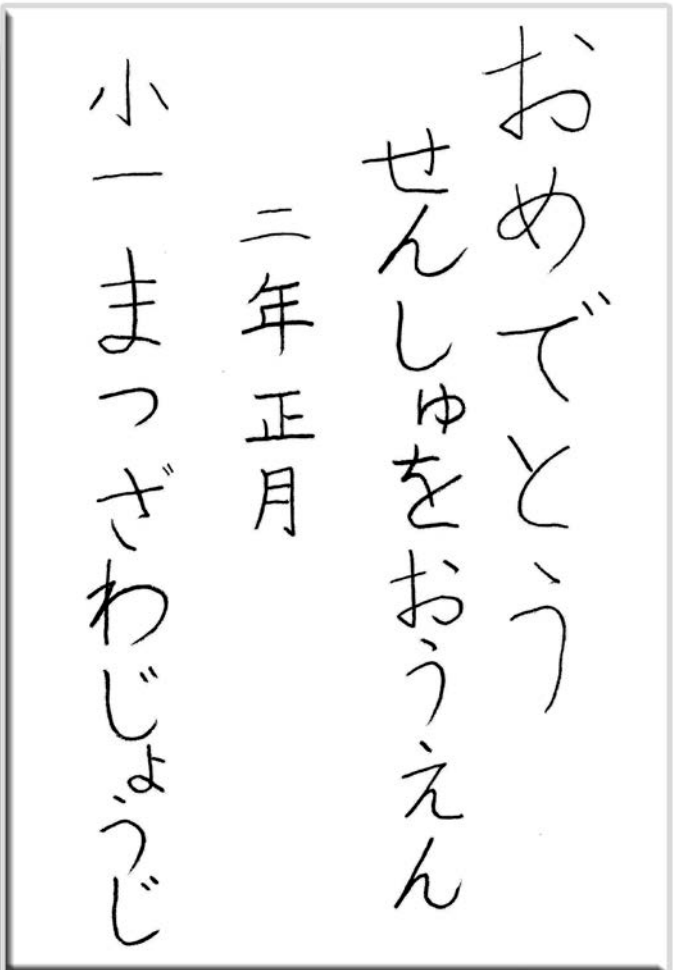 おめでとう
せんしゅをおうえん
二年正月
小一まつざわじょうじ